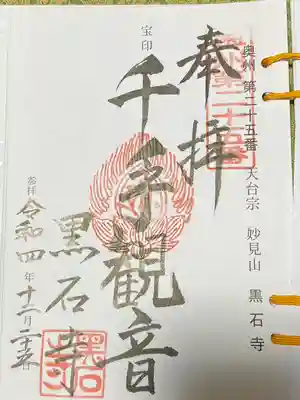 奥州 第二十五番 天台宗 妙見山 黒石寺
奉拝
宝印
千手観音
黒石寺
参拝 令和四年十二月二十五日